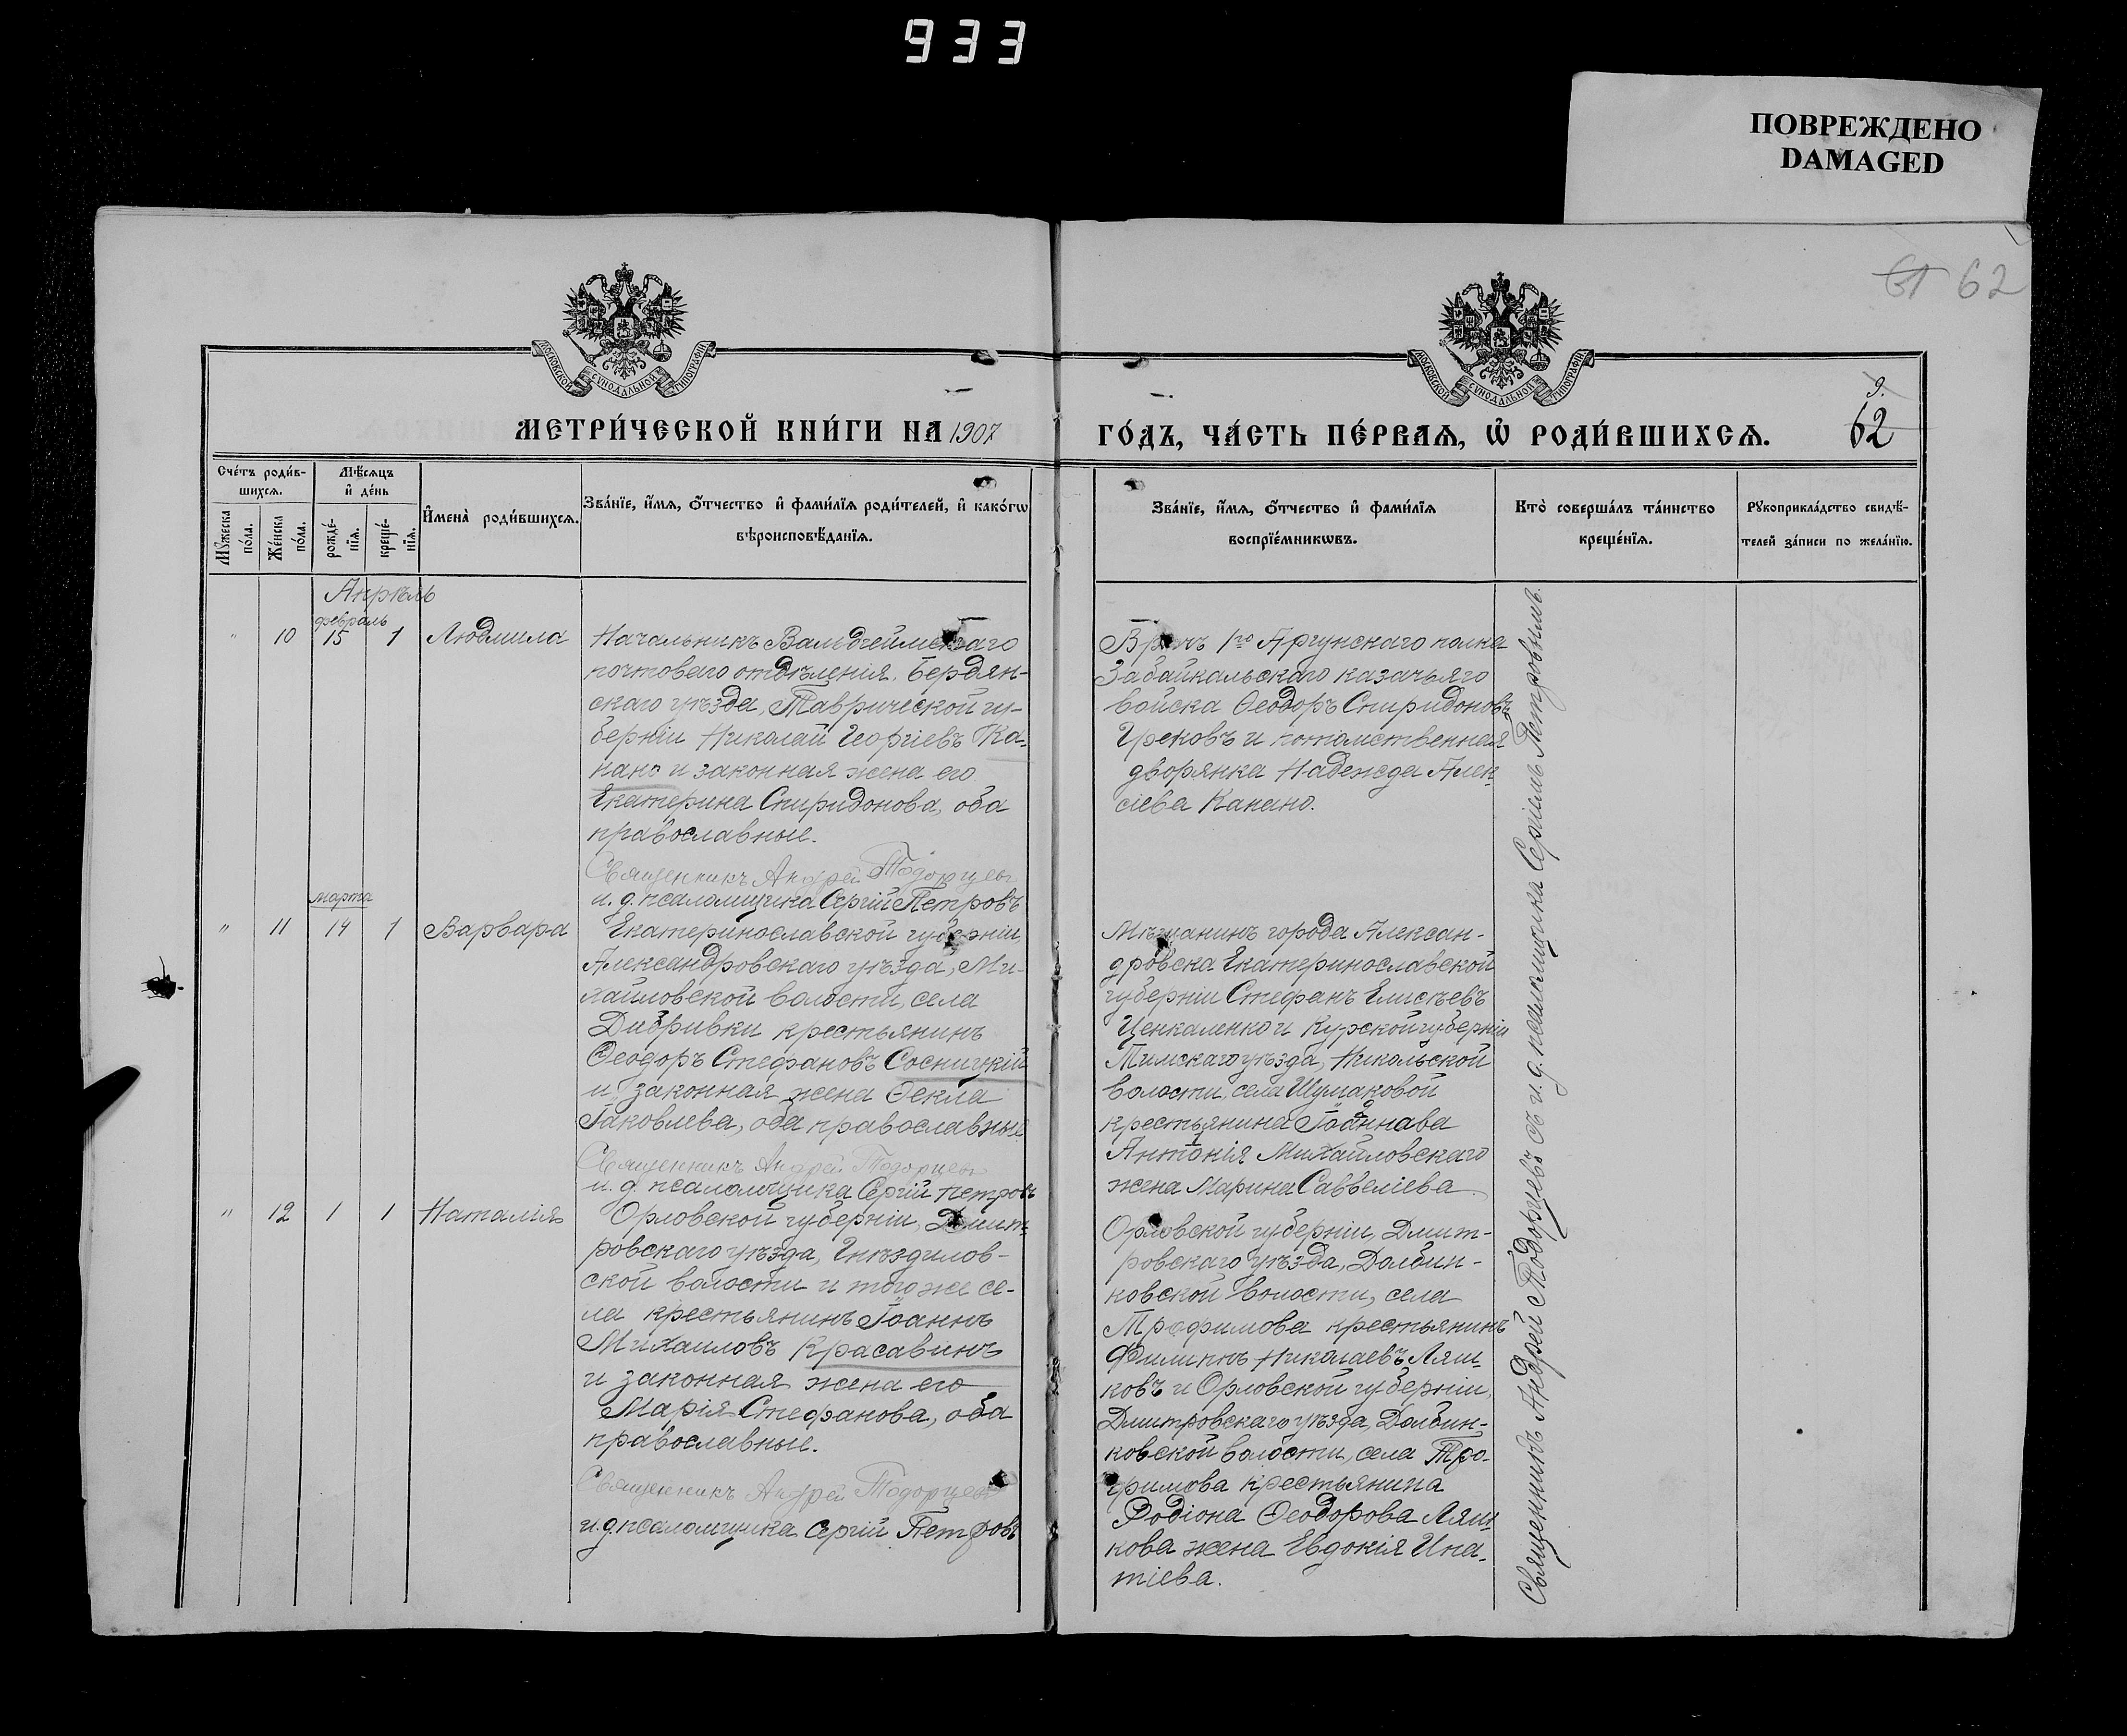 933
ПОВРЕЖДЕНО
DAMAGED
61 62
МОСКОВСКОЙ СѴНОДАЛЬНОЙ ТИПОГРАФІИ
МОСКОВСКОЙ СѴНОДАЛЬНОЙ ТИПОГРАФІИ
9.
62
МЕТРИ́ЧЕСКОЙ КНИ́ГИ НА 1907
ГО́ДЪ, ЧА́СТЬ ПЕ́РВАѦ, Ѡ҆ РОДИ́ВШИХСѦ.
Сче́тъ роди́в-
шихсѧ.
Мꙋ́жеска
по́ла.
Же́нска
по́ла.
Мѣ́сѧцъ
и҆ де́нь
рожде́-
нїѧ.
креще́-
нїѧ.
И҆мена̀ роди́вшихсѧ.
Зва́нїе, и҆́мѧ, ѻ҆́тчество и҆ фами́лїѧ роди́телей, и҆ како́гѡ
вѣроисповѣ́данїѧ.
Зва́нїе, и҆́мѧ, ѻ҆́тчество и҆ фами́лїѧ
воспрїе́мникѡвъ.
Кто̀ соверша́лъ та́инство
креще́нїѧ.
Рꙋкоприкла́дство свидѣ́-
телей за́писи по жела́нїю.
Апрѣль
февраль
" 10 15 1 Людмила
Начальникъ Вальдгеймскаго
почтоваго отдѣленія, Бердян-
скаго уѣзда, Таврической гу-
берніи Николай Георгіевъ Ка-
нано и законная жена его
Екатерина Спиридонова, оба
православные.
Священникъ Андрей Тодорцевъ
и. д. псаломщика Сергій Петровъ
Врачъ 1го Аргунскаго полка
Забайкальскаго казачьяго
войска Ѳеодоръ Спиридоновъ
Грековъ и потомственная
дворянка Надежда Алек-
сіева Канано.
марта
" 11 14 1 Варвара
Екатеринославской губерніи
Александровскаго уѣзда, Ми-
хайловской волости, села
Дибривки крестьянинъ
Ѳеодоръ Стефановъ Сосницкій
и законная жена Ѳекла
Іаковлева, оба православные
Священникъ Андрей Тодорцевъ
и. д. псаломщика Сергій Петровъ
Мѣщанинъ города Алексан-
дровска Екатеринославской
губерніи Стефанъ Елисѣевъ
Ценкаленко и Курской губерніи
Тимскаго уѣзда, Никольской
волости, села Шумаковой
крестьянина Іоаннава
Антонія Михайловскаго
жена Марина Саввеліева.
" 12 1 1 Наталія
Орловской губерніи, Дмит-
ровскаго уѣзда, Гнѣздилов-
ской волости и того же се-
ла крестьянинъ Іоаннъ
Михаиловъ Красавинъ
и законная жена его
Марія Стефанова, оба
православные.
Священникъ Андрей Тодорцевъ
и. д. псаломщика Сергій Петровъ
Орловской губерніи, Дмит-
ровскаго уѣзда, Долбин-
ковской волости, села
Трофимова крестьянинъ
Филиппъ Николаевъ Ляш-
ковъ и Орловской губерніи,
Дмитровскаго уѣзда, Долбин-
ковской волости, села Тро-
фимова крестьянина
Родіона Ѳеодорова Ляш-
кова жена Евдокія Ипа-
тіева.
Священникъ Андрей Тодорцевъ съ и. д. псаломщика Сергіемъ Петровымъ.